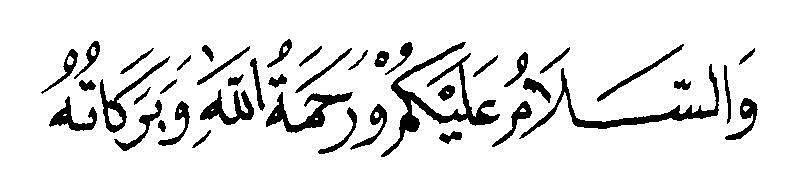 وَالسَّلَامُ عَلَيْكُمْ وَرَحْمَةُ اللَّهِ وَبَرَكَاتُهُ